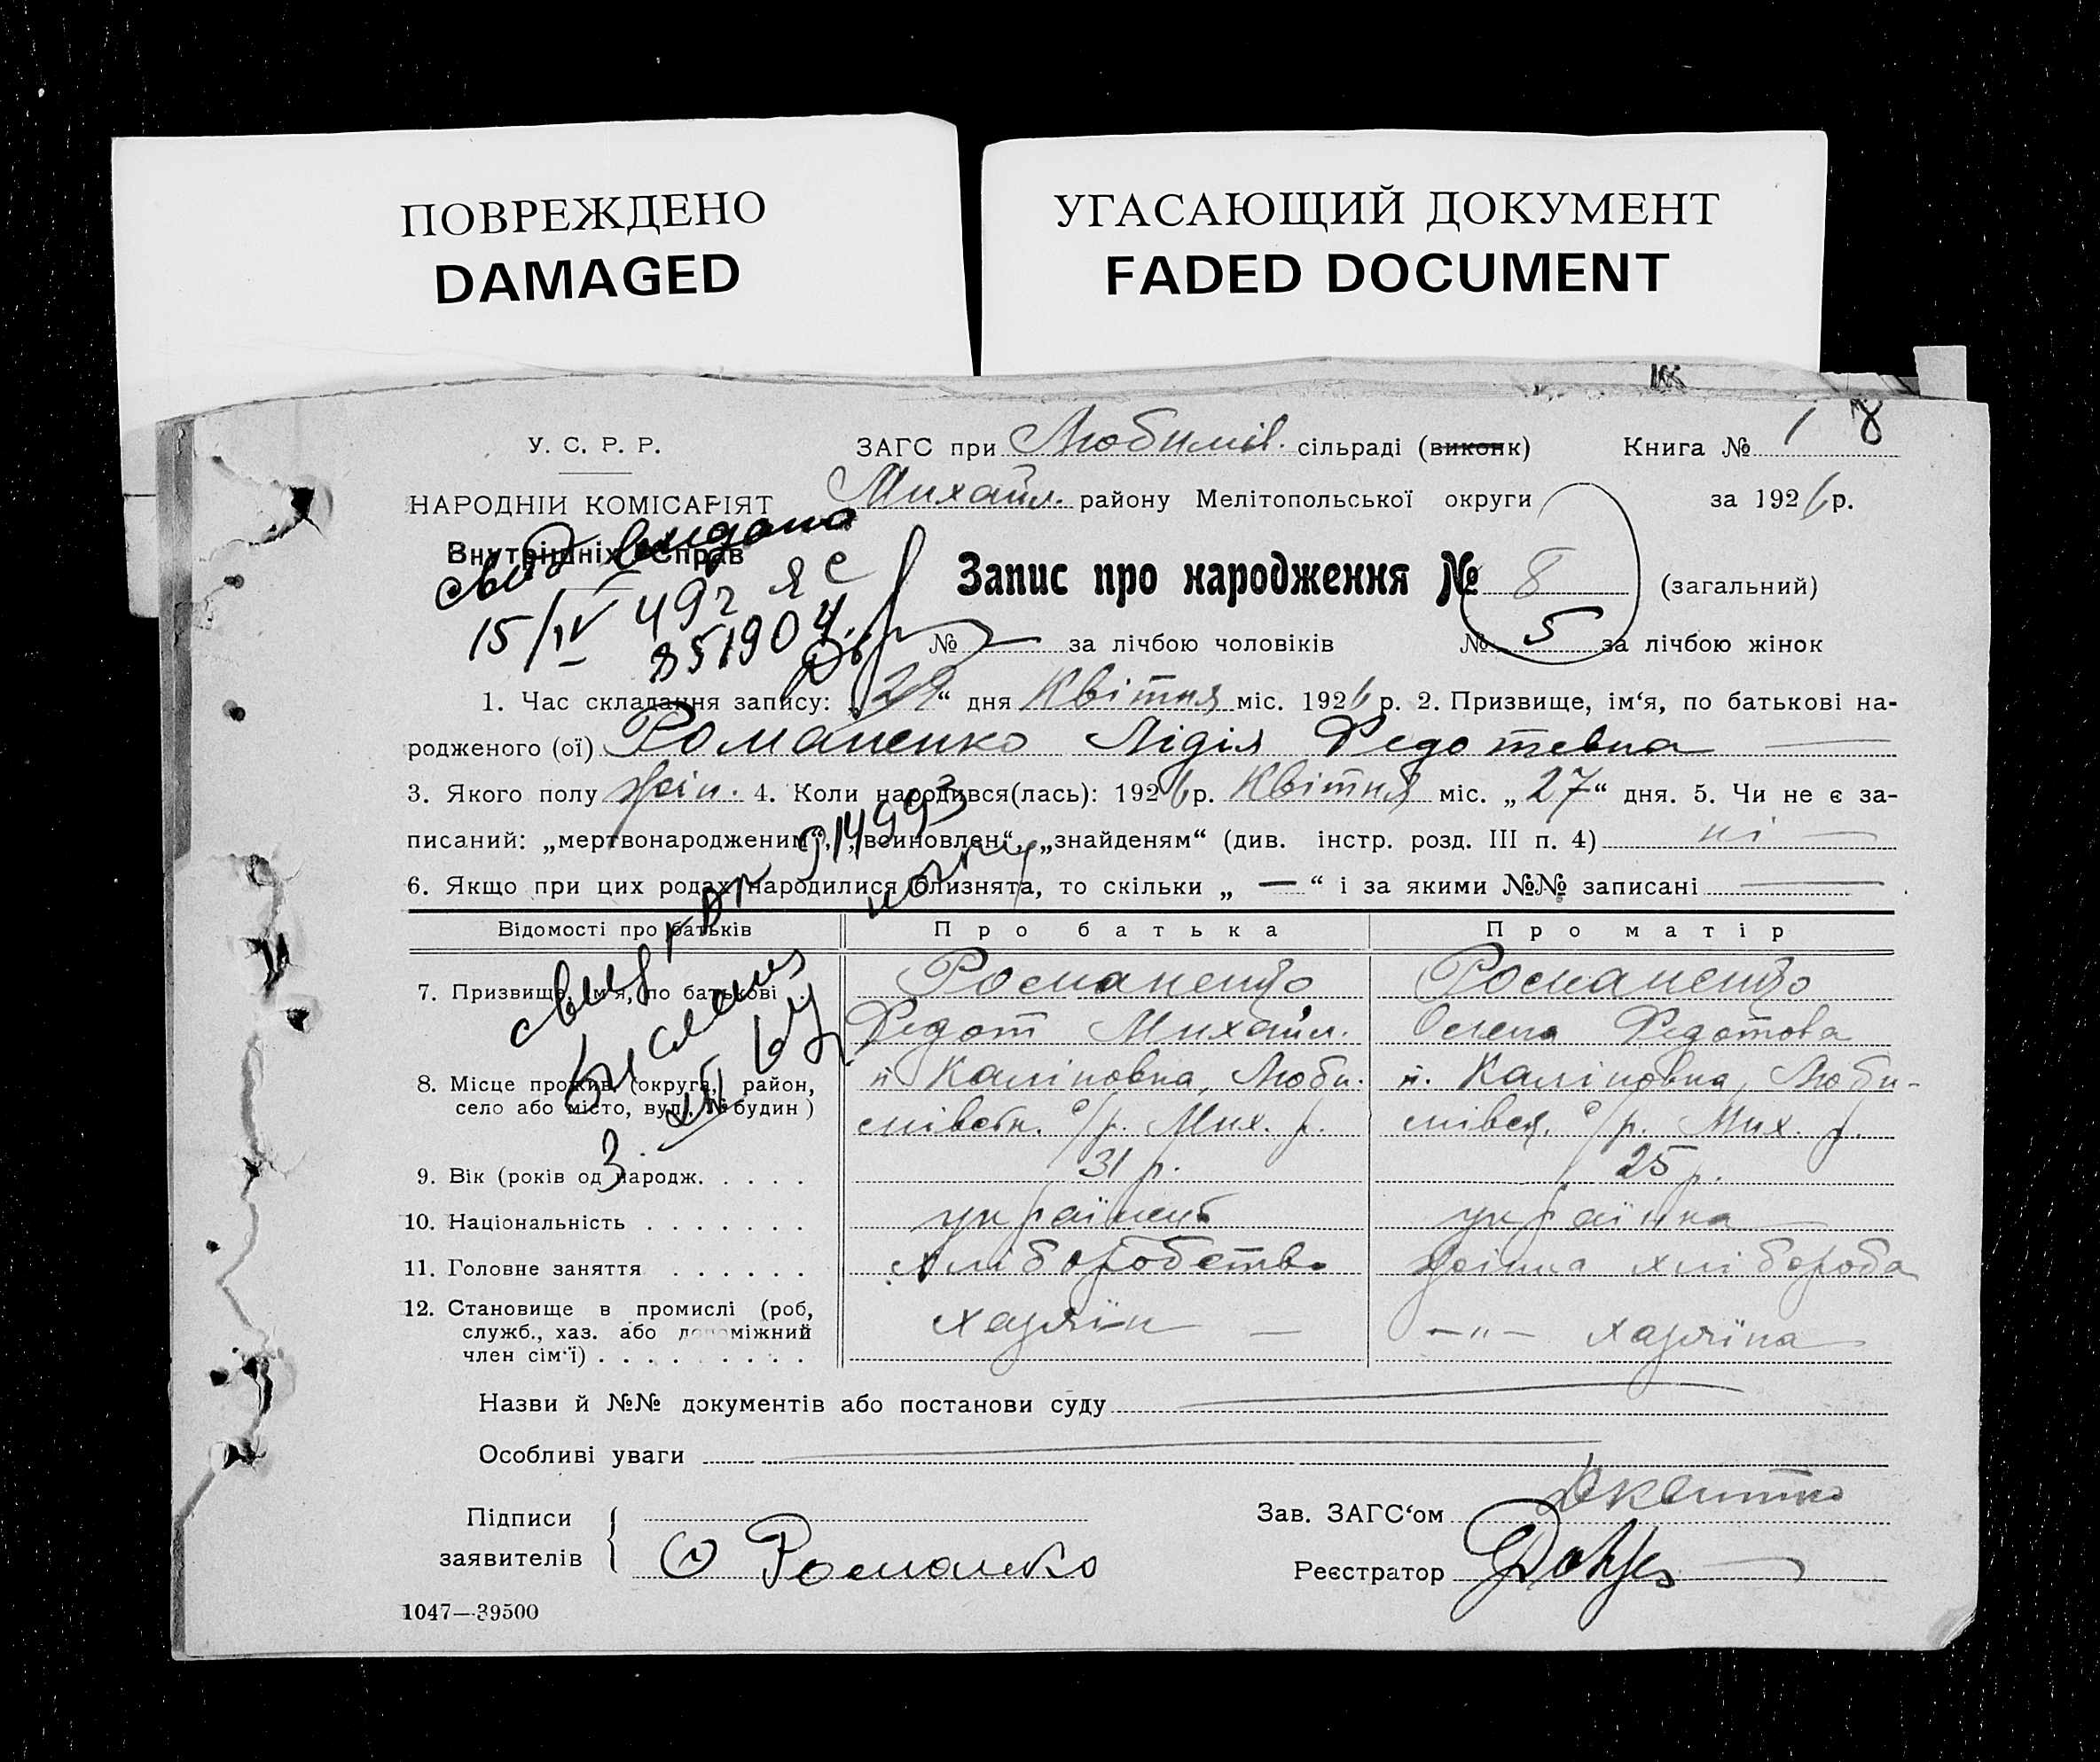 ПОВРЕЖДЕНО
DAMAGED
УГАСАЮЩИЙ ДОКУМЕНТ
FADED DOCUMENT
У. С. Р. Р.
НАРОДНІЙ КОМІСАРІЯТ
Внутрішніх Справ
ЗАГС при Любимів. сільраді (виконк)
Книга № 1 8
Михайл. району Мелітопольської округи за 1926 р.
видано
15/IV 49 г ЯС
851904
Запис про народження № 8 (загальний)
№ — за лічбою чоловіків № 5 за лічбою жінок
1. Час складання запису: „29“ дня Квітня міс. 1926 р. 2. Призвище, ім‘я, по батькові на-
родженого (ої) Романенко Лідія Федотевна —
3. Якого полу жін. 4. Коли народився(лась): 1926 р. Квітня міс. „27“ дня. 5. Чи не є за-
писаний: „мертвонародженим“, „всиновлен“, „знайденям“ (див. інстр. розд. III п. 4) ні —
6. Якщо при цих родах народилися близнята, то скільки „ — “ і за якими №№ записані —
914993
Відомості про батьків Про батька Про матір
7. Призвище, ім‘я, по батькові
Романенко Романенко
Федот Михайл. Олена Федотова
8. Місце прожив. (округа, район,
село або місто, вул., № будин)
п. Каліновка, Люби- п. Каліновка, Люби-
мівськ. с/р. Мих. р. мівськ. с/р. Мих. р.
9. Вік (років од народж. 31 р. 25 р.
10. Національність українець українка —
11. Головне заняття хліборобство жінка хлібороба
12. Становище в промислі (роб,
служб., хаз. або допоміжний
член сім‘ї)
хазяїн — —„— хазяїна
Назви й №№ документів або постанови суду —
Особливі уваги —
Підписи
заявителів
О Романко
Зав. ЗАГС‘ом
Реєстратор
1047—39500